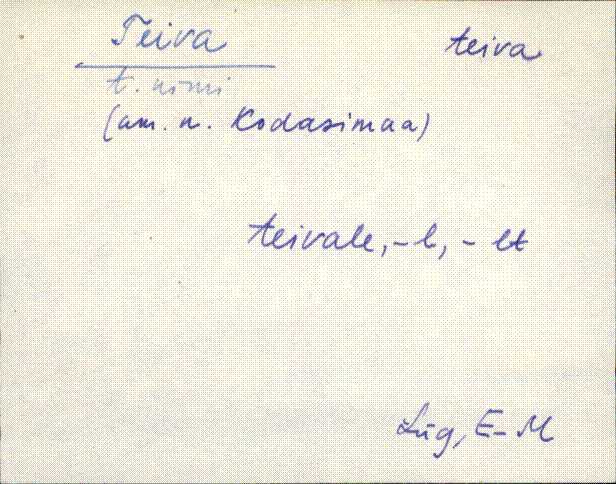 Teiva teiva
t. nimi
(am. n. Kodasimaa)
teivale, -l, -lt
Lüg, E-M